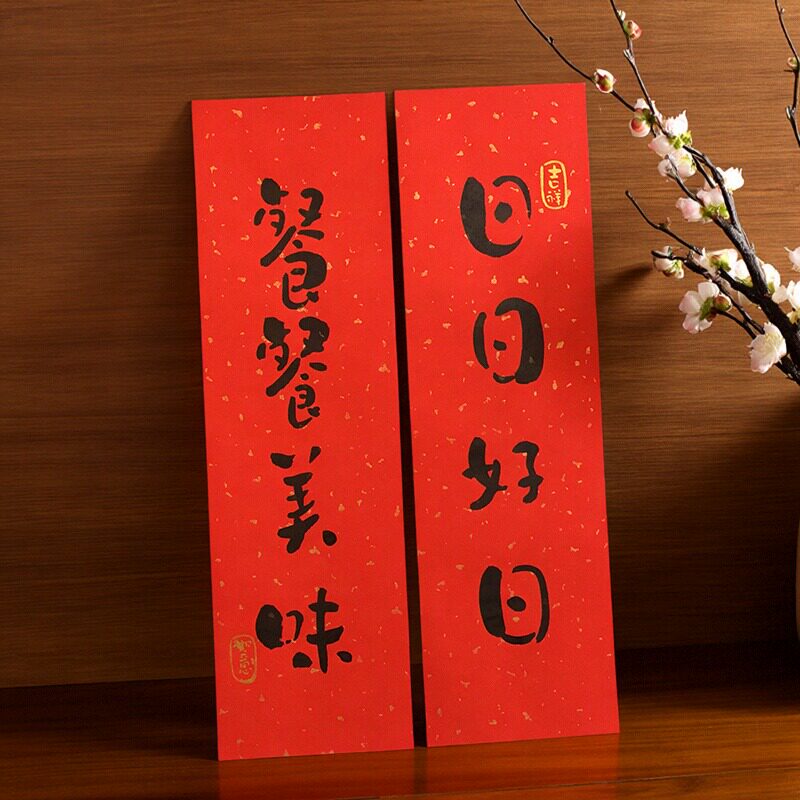 日日好日
吉祥
餐餐美味
如意